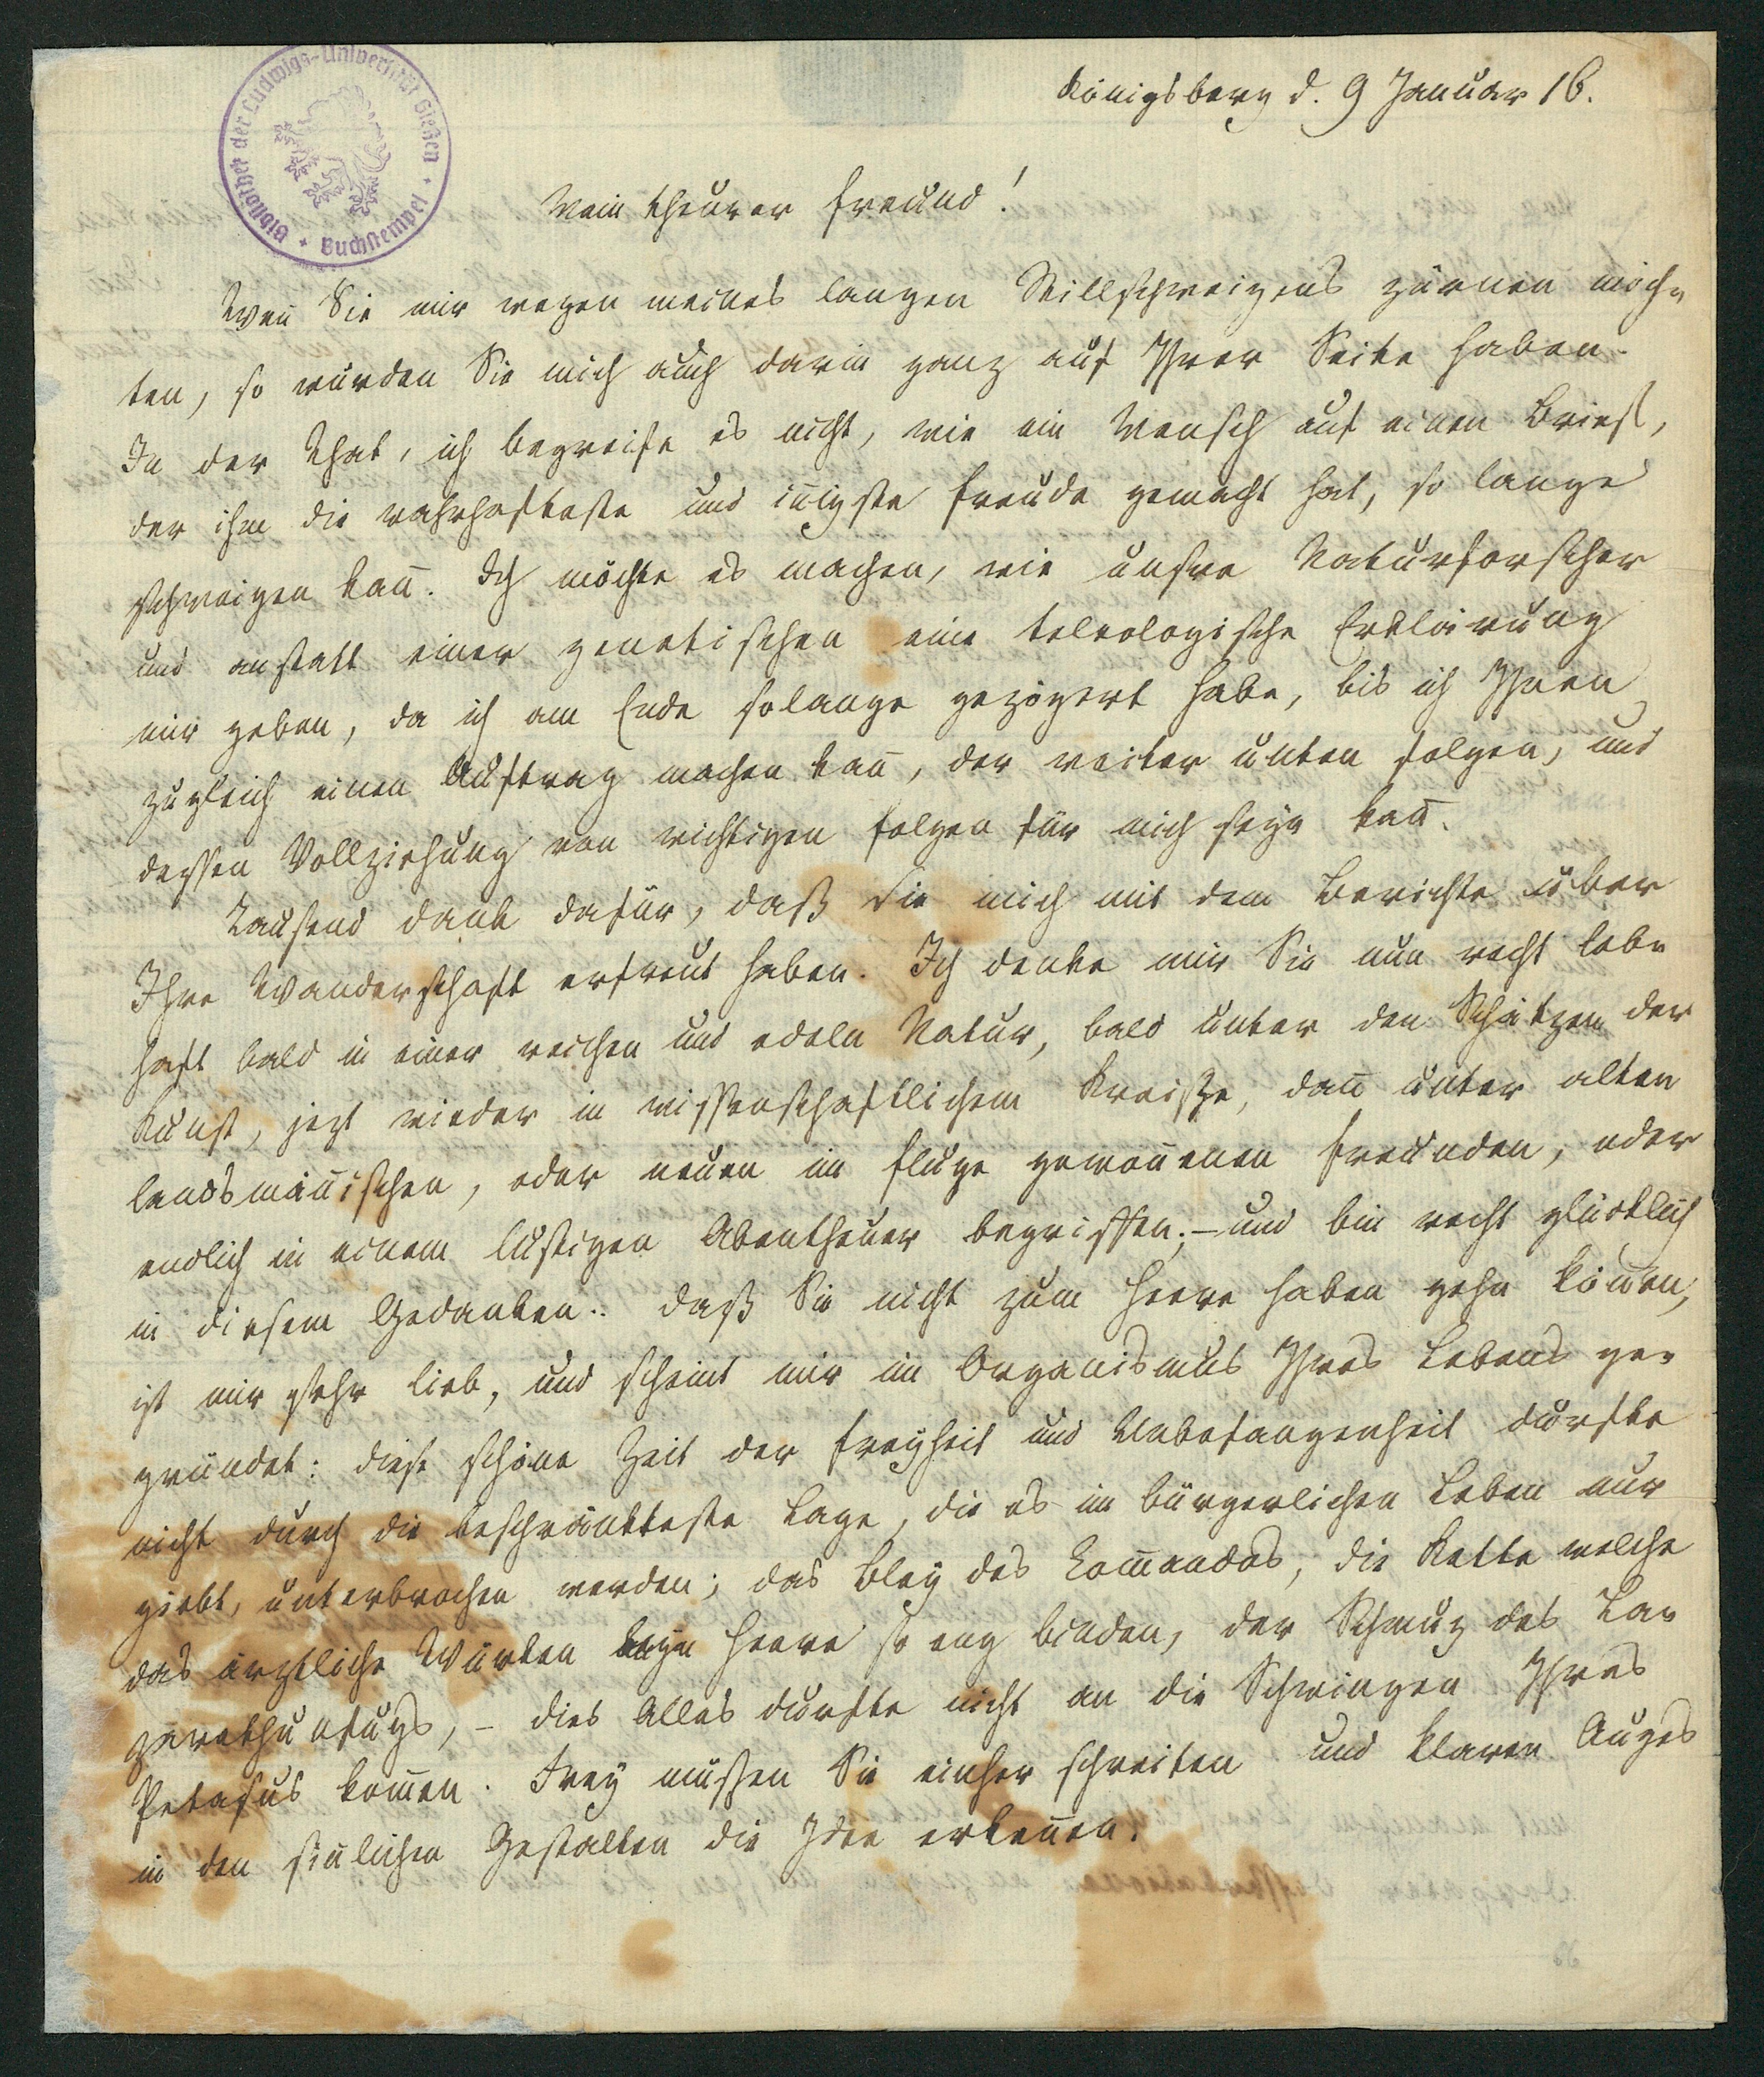 Bibliothek der Ludwigs-Universität Gießen * Buchstempel *
Königsberg d. 9 Januar 16.
Mein theurer Freund!
Weñ Sie mir wegen meines langen Stillschweigens zürnen möch-
ten, so würden Sie mich auch darin ganz auf Ihrer Seite haben.
In der That, ich begreife es nicht, wie ein Mensch auf einen Brief,
der ihm die wahrhafteste und iñigste Freude gemacht hat, so lange
schweigen kañ. Ich möchte es machen, wie unsre Naturforscher
und anstatt einer genetischen eine teleologische Erklärung
mir geben, da ich am Ende solange gezögert habe, bis ich Ihnen
zugleich einen Auftrag machen kañ, der weiter unten folgen, und
dessen Vollziehung von wichtigen Folgen für mich seyn kañ.
Tausend Dank dafür, daß Sie mich mit dem Berichte über
Ihre Wanderschaft erfreut haben. Ich denke mir Sie nun recht leb-
haft bald in einer reichen und edeln Natur, bald unter den Schätzen der
Kunst, jezt wieder in wissenschaftlichem Kreiße, dañ unter alten
landsmäñischen, oder neuen im Fluge gewoñenen Freunden, oder
endlich in einem lustigen Abentheuer begriffen; – und bin recht glücklich
in diesem Gedanken. Daß Sie nicht zum Heere haben gehn köñen,
ist mir sehr lieb, und scheint mir im Organismus Ihres Lebens ge-
gründet: diese schöne Zeit der Freyheit und Unbefangenheit durfte
nicht durch die beschränkteste Lage, die es im bürgerlichen Leben nur
giebt, unterbrochen werden; das Bley des Com̃andos, die Kette welche
das ärztliche Würken beym Heere so eng binden, der Schmuz des La-
zarethunfugs, – dies Alles durfte nicht an die Schwingen Ihres
Petasus kom̃en. Frey müssen Sie einher schreiten und klaren Auges
in den siñlichen Gestalten die Idee erkeñen.